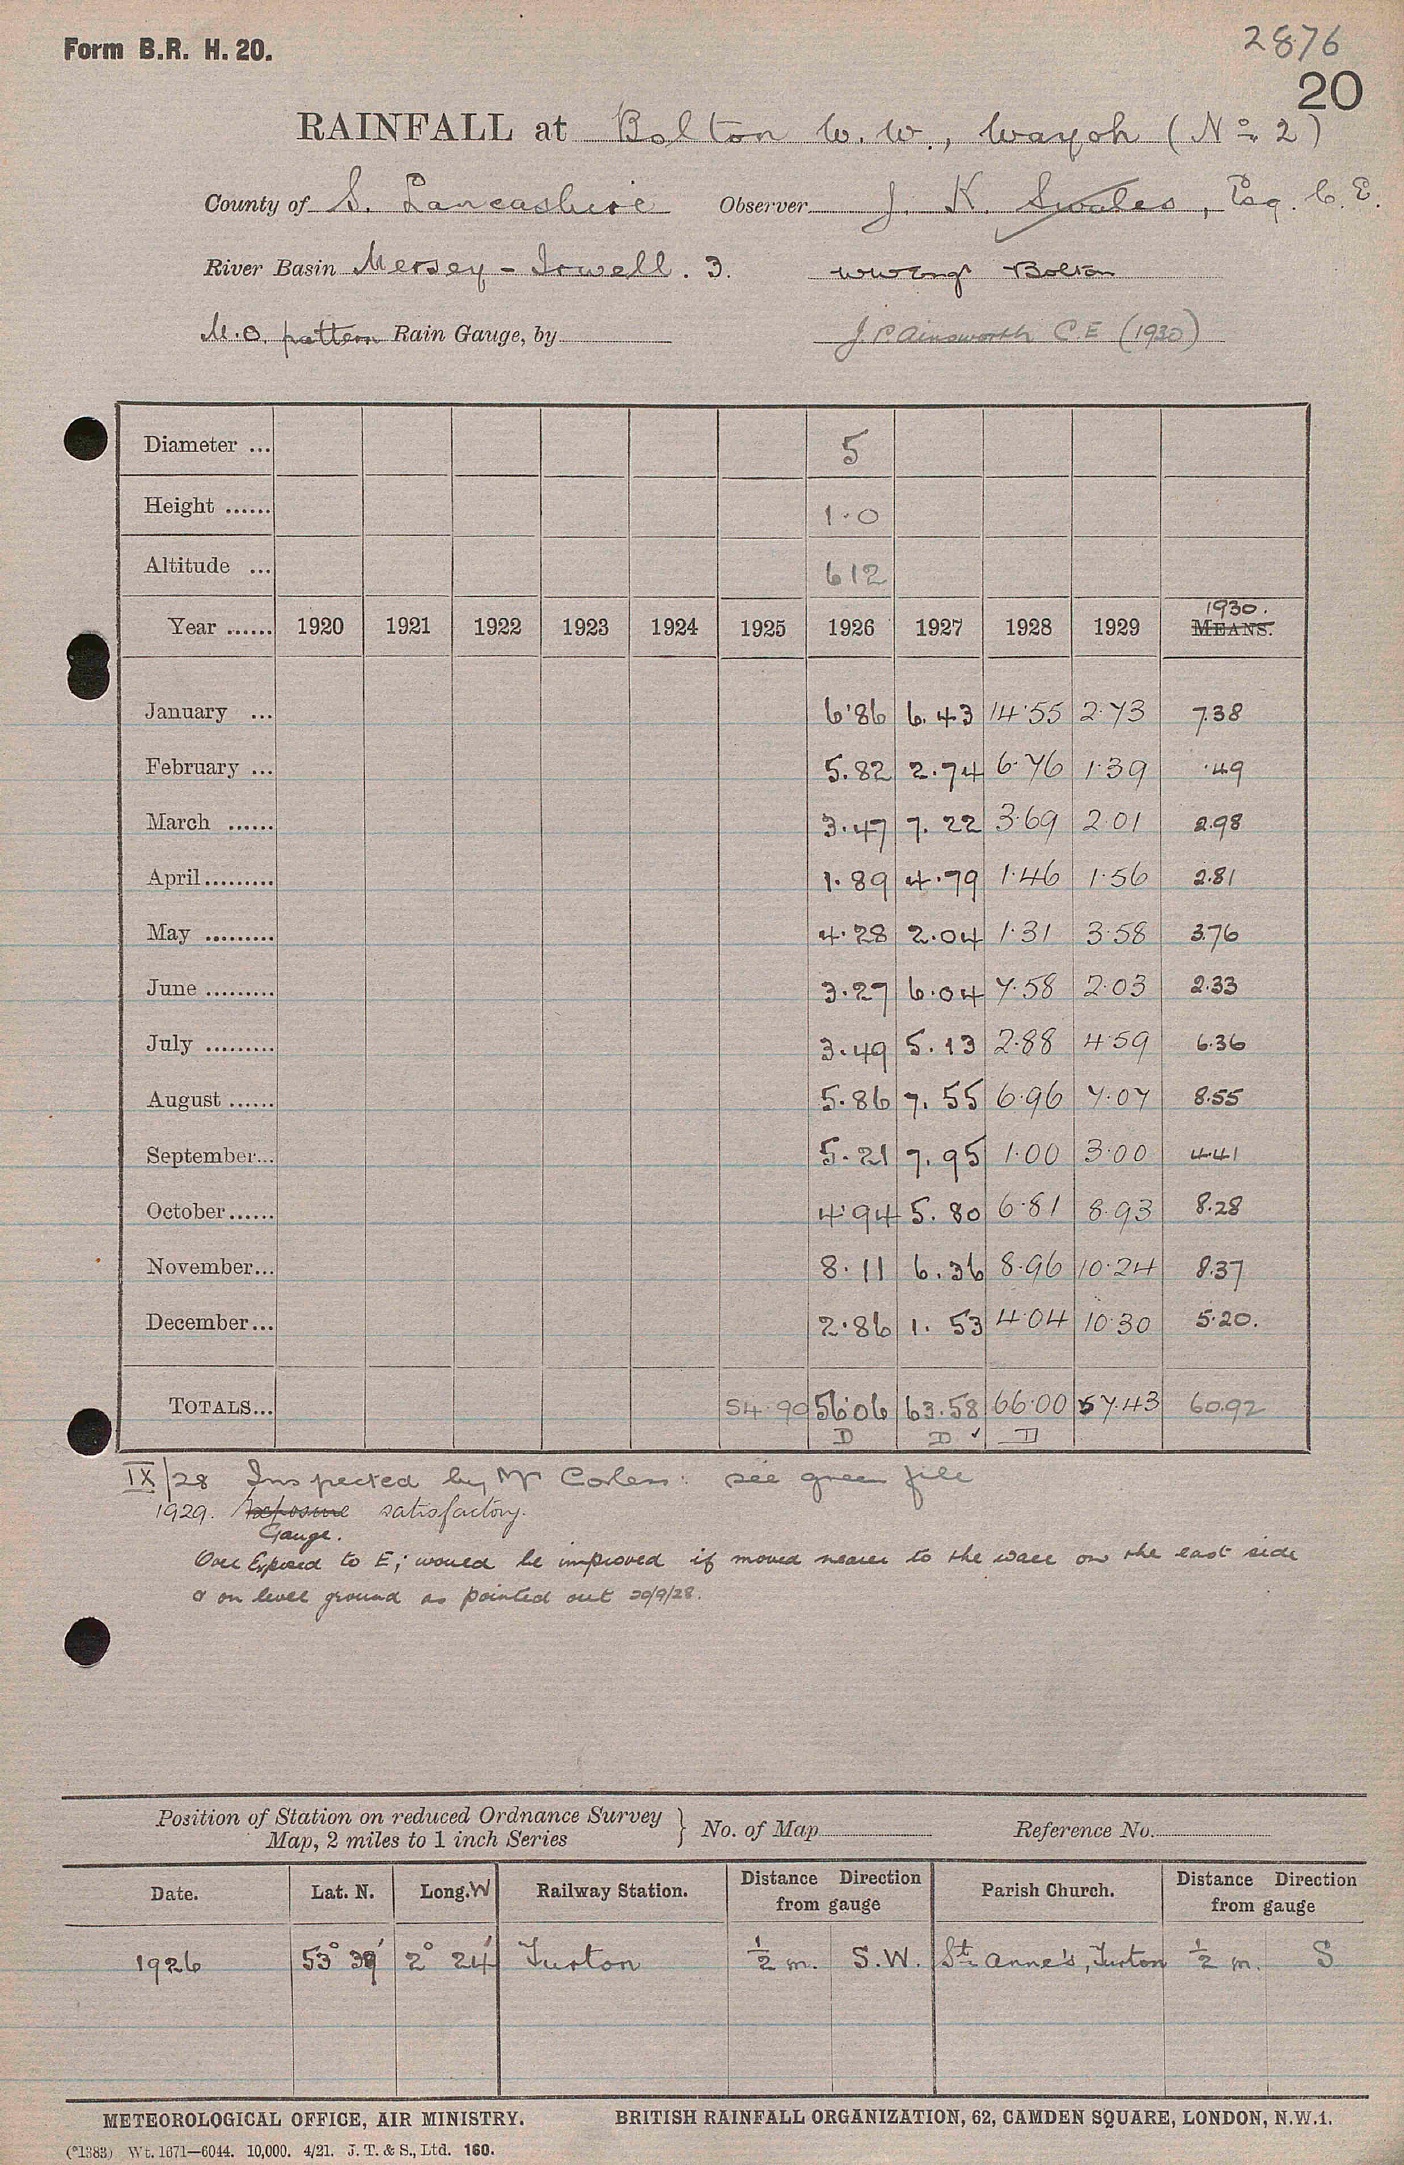 Form B.R. H. 20.
2876
20
RAINFALL at Bolton W. W., Wayoh (No. 2)
County of S. Lancashire Observer J. K. Swales, Esq. C. E.
River Basin Mersey - Irwell. 3. WWEngr Bolton
M.O. pattern Rain Gauge, by J. P. Ainsworth C.E (1930)
Diameter ... 5
Height ...... 1.0
Altitude ... 612
1930.
Year ...... 1920 1921 1922 1923 1924 1925 1926 1927 1928 1929 MEANS.
January ... 6.86 6.43 14.55 2.73 7.38
February ... 5.82 2.74 6.76 1.39 .49
March ...... 3.47 7.22 3.69 2.01 2.98
April ......... 1.89 4.79 1.46 1.56 2.81
May ......... 4.28 2.04 1.31 3.58 3.76
June ......... 3.27 6.04 7.58 2.03 2.33
July ......... 3.49 5.13 2.88 4.59 6.36
August ...... 5.86 7.55 6.96 7.07 8.55
September... 5.21 7.95 1.00 3.00 4.41
October ...... 4.94 5.80 6.81 8.93 8.28
November... 8.11 6.36 8.96 10.24 8.37
December... 2.86 1.53 4.04 10.30 5.20.
TOTALS... 54.90 56.06 63.58 66.00 57.43 60.92
D D ✓ II
IX/28 Inspected by Mr Corless: see green file
1929. Exposure satisfactory.
Gauge.
Over Exposed to E; would be improved if moved nearer to the wall on the east side
& on level ground as pointed out 20/9/28.
Position of Station on reduced Ordnance Survey
Map, 2 miles to 1 inch Series } No. of Map Reference No.
Date. Lat. N. Long. W Railway Station. Distance Direction from gauge Parish Church. Distance Direction from gauge
1926 53° 39' 2° 24' Turton ½ m. S.W. St. Anne's, Turton ½ m. S
METEOROLOGICAL OFFICE, AIR MINISTRY. BRITISH RAINFALL ORGANIZATION, 62, CAMDEN SQUARE, LONDON, N.W.1.
(*1383) Wt. 1671—6044. 10,000. 4/21. J. T. & S., Ltd. 160.